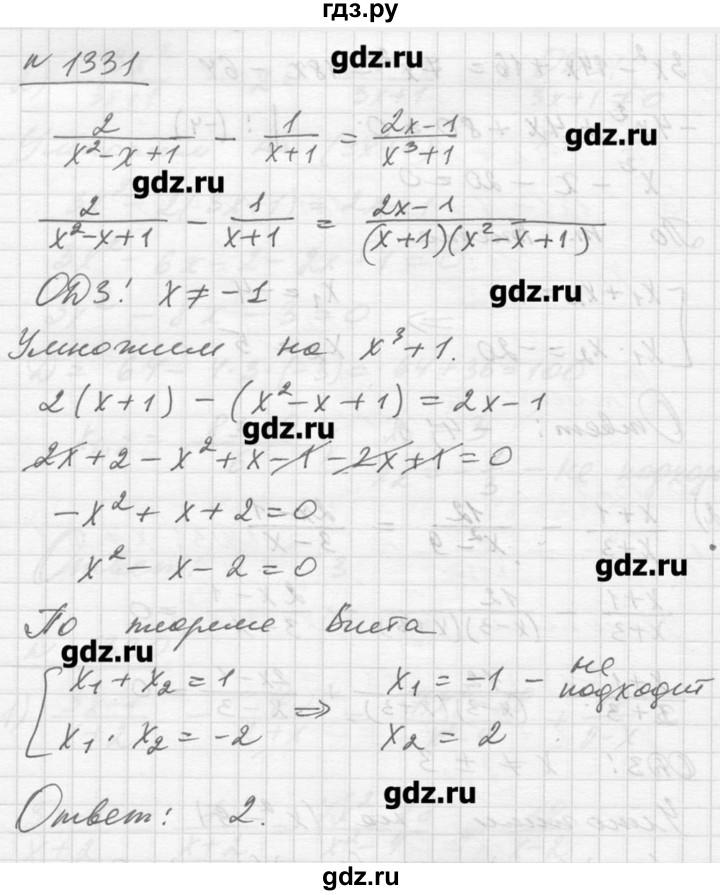 гдз.ру
N 1331
gdz.ru
2/(x²-x+1) - 1/(x+1) = (2x-1)/(x³+1)
gdz.ru
gdz.ru
2/(x²-x+1) - 1/(x+1) = (2x-1)/((x+1)(x²-x+1))
ОДЗ: x ≠ -1
gdz.ru
Умножим на x³+1.
2(x+1) - (x²-x+1) = 2x-1
gdz.ru
2x+2-x²+x-1-2x+1=0
-x²+x+2=0
x²-x-2=0
gdz.ru
По теореме Виета
gdz.ru
x₁+x₂=1 ⇒ x₁=-1 - не подходит
x₁·x₂=-2 x₂=2
gdz.ru
Ответ: 2.
gdz.ru